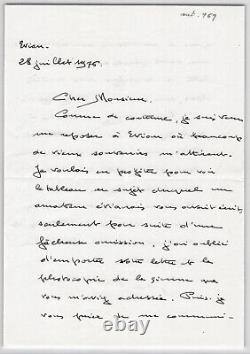 aut. 959
Evian.
28 juillet 1976.
Cher Monsieur.
Comme de coutume, je suis venu
me reposer à Evian où beaucoup
de vieux souvenirs m'attirent.
Je voulais en profiter pour voir
le tableau au sujet duquel un
amateur évianais vous avait écrit,
seulement par suite d'une
fâcheuse omission, j'ai oublié
d'emporter votre lettre et la
photocopie de la sienne que
vous m'aviez adressée. Puis-je
vous prier de me communi-
ebay